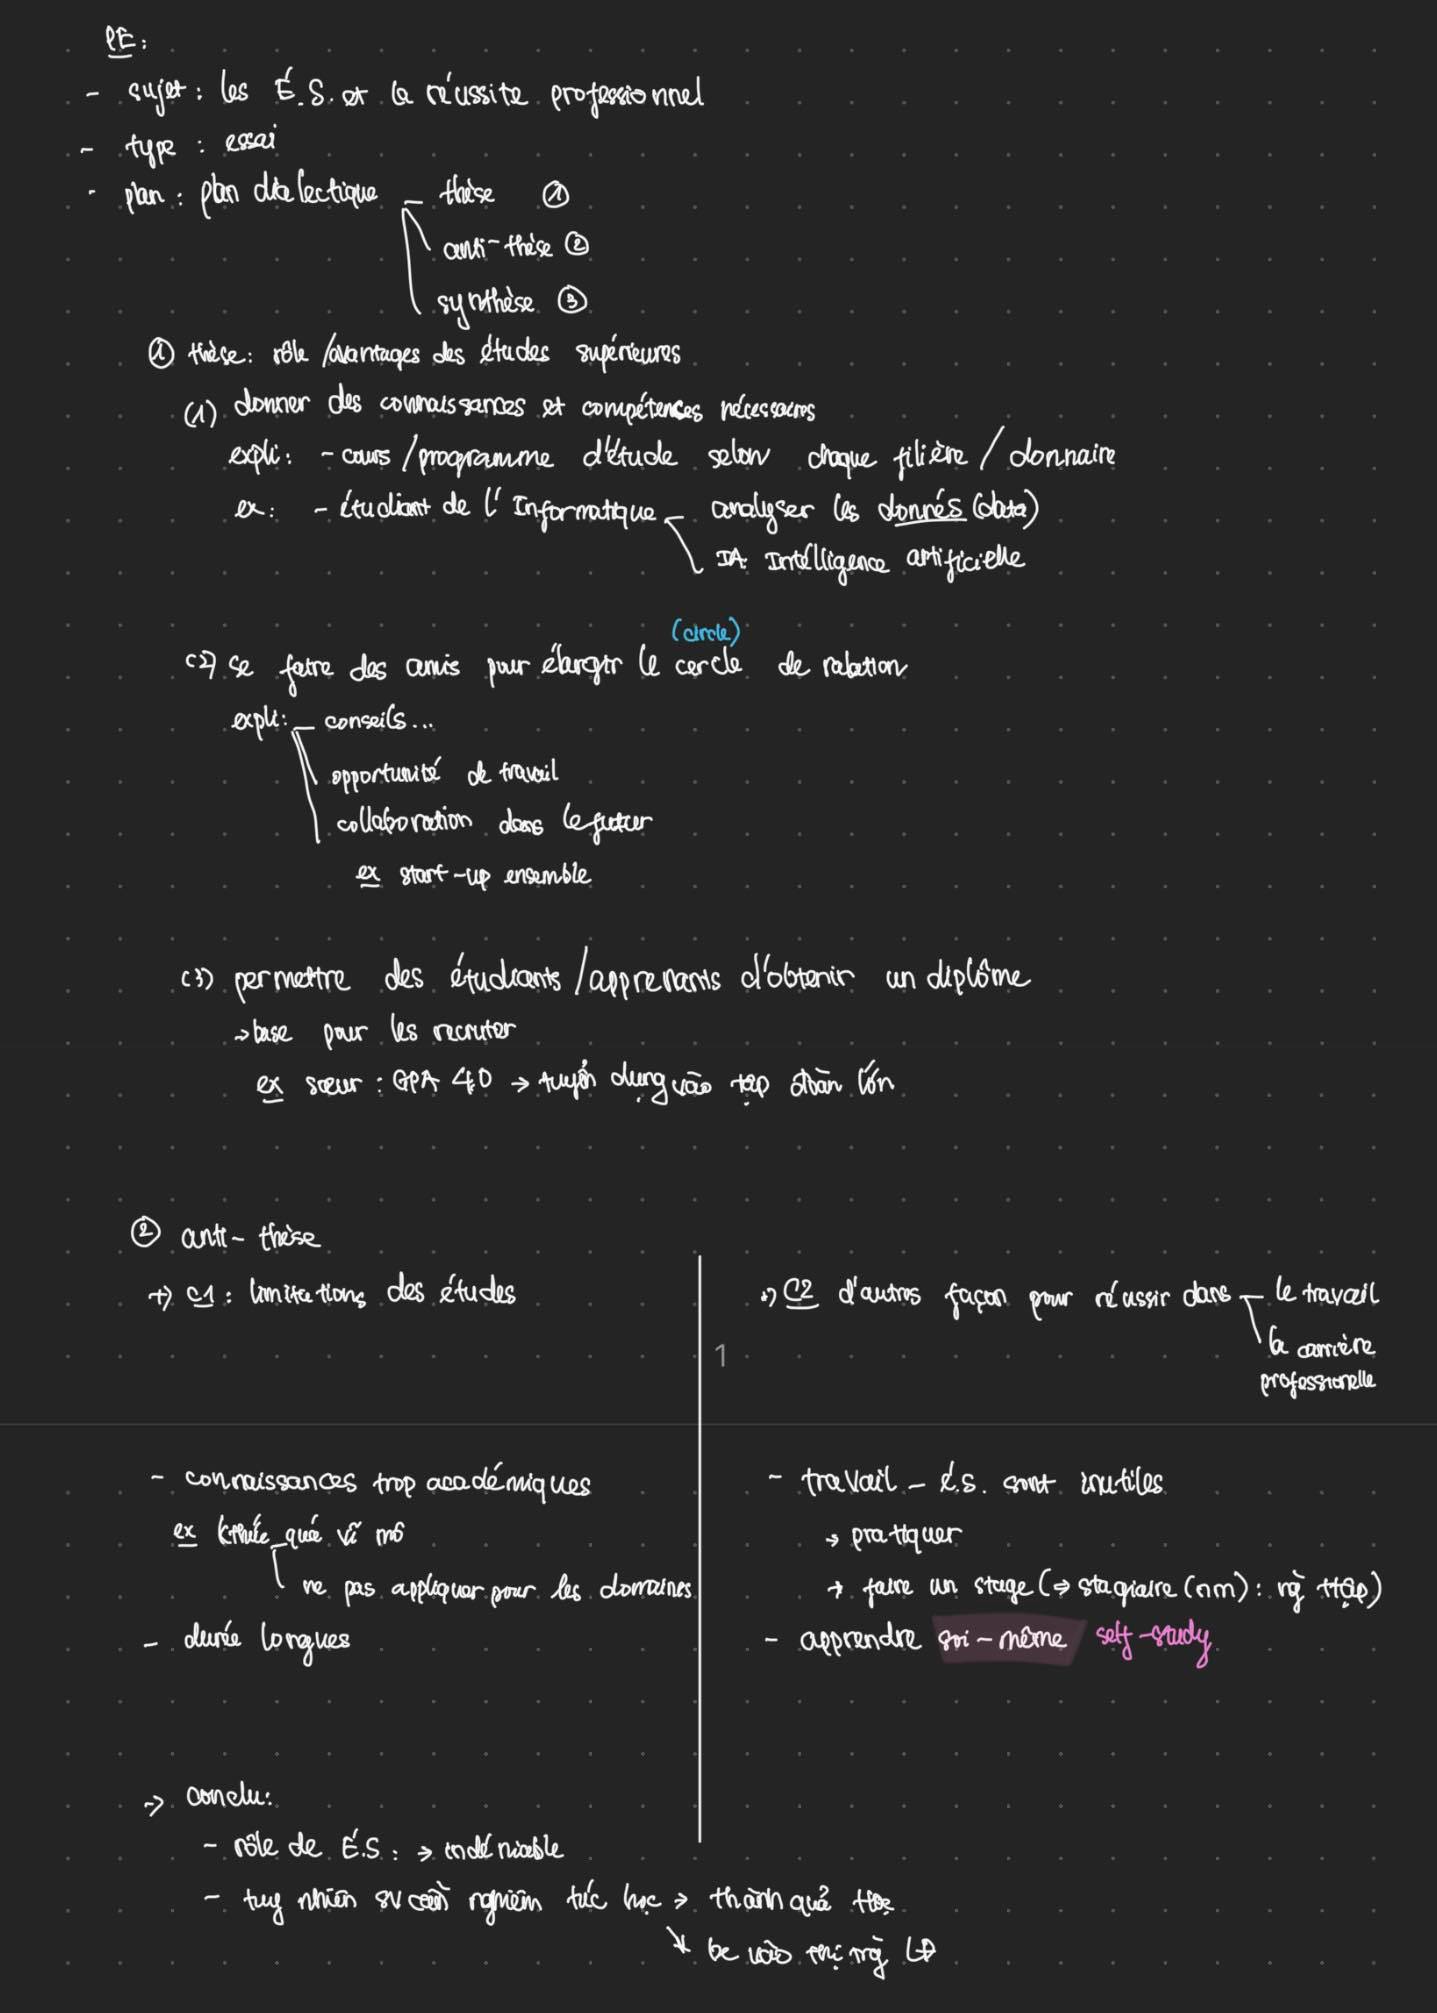 PE:
- sujet : les É.S. et la réussite professionnel
- type : essai
- plan : plan dialectique - thèse ①
anti-thèse ②
synthèse ③
① thèse: rôle /avantages des études supérieures
(1) donner des connaissances et compétences nécessaires
expli: - cours /programme d'étude selon chaque filière / donnaire
ex: - étudiant de l'Informatique - analyser les donnés (data)
IA: Intélligence artificielle
(circle)
(2) se faire des amis pour élargir le cercle de relation
expli: - conseils...
opportunité de travail
collaboration dans le futur
ex start-up ensemble
(3) permettre des étudiants /apprenants d'obtenir un diplôme
→ base pour les recruter
ex sœur : GPA 4.0 → tuyển dụng vào tập đoàn lớn
② anti-thèse
+) C1 : limitations des études
- connaissances trop académiques
ex kthức quá vĩ mô
ne pas appliquer pour les domaines
- durée longues
+) C2 d'autres façon pour réussir dans - le travail
la carrière
professionelle
1
- travail - É.S. sont inutiles
→ pratiquer
→ faire un stage (⇒ stagiaire (nm) : ng ttập)
- apprendre soi-même self-study
→ conclu:
- rôle de É.S : → indéniable
- tuy nhiên sv cần nghiêm túc học → thành quả
vào thị trg LĐ